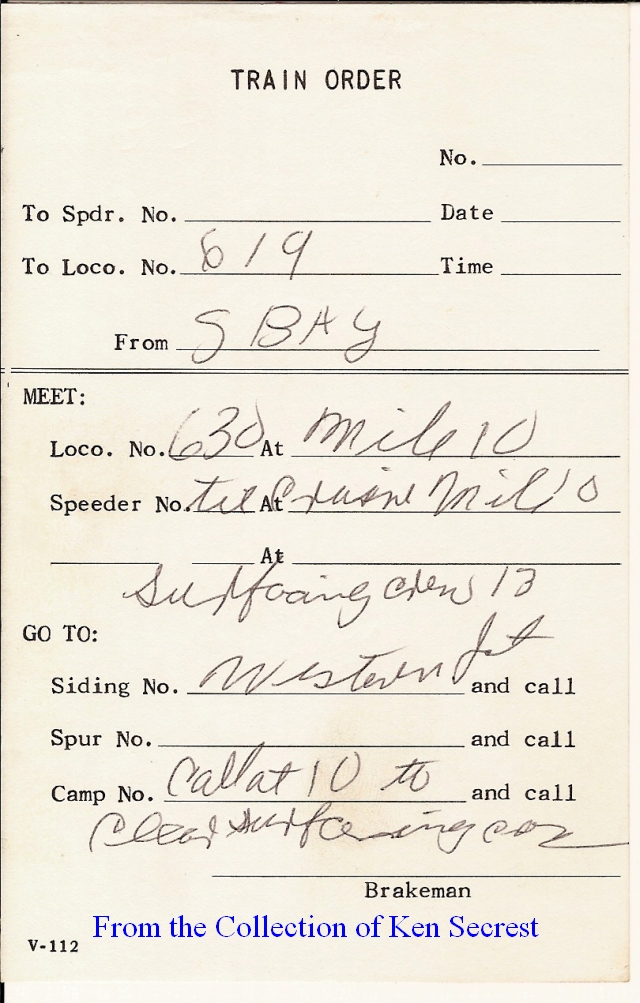 TRAIN ORDER
No.
To Spdr. No. Date
To Loco. No. 619 Time
From G BAY
MEET:
Loco. No. 630 At Mile 10
Speeder No. tie Crane At Mile 10
At
Surfacing crew 13
GO TO:
Siding No. Western Jct and call
Spur No. and call
Camp No. Call at 10 to and call
Clear surfaceing
Brakeman
From the Collection of Ken Secrest
V-112